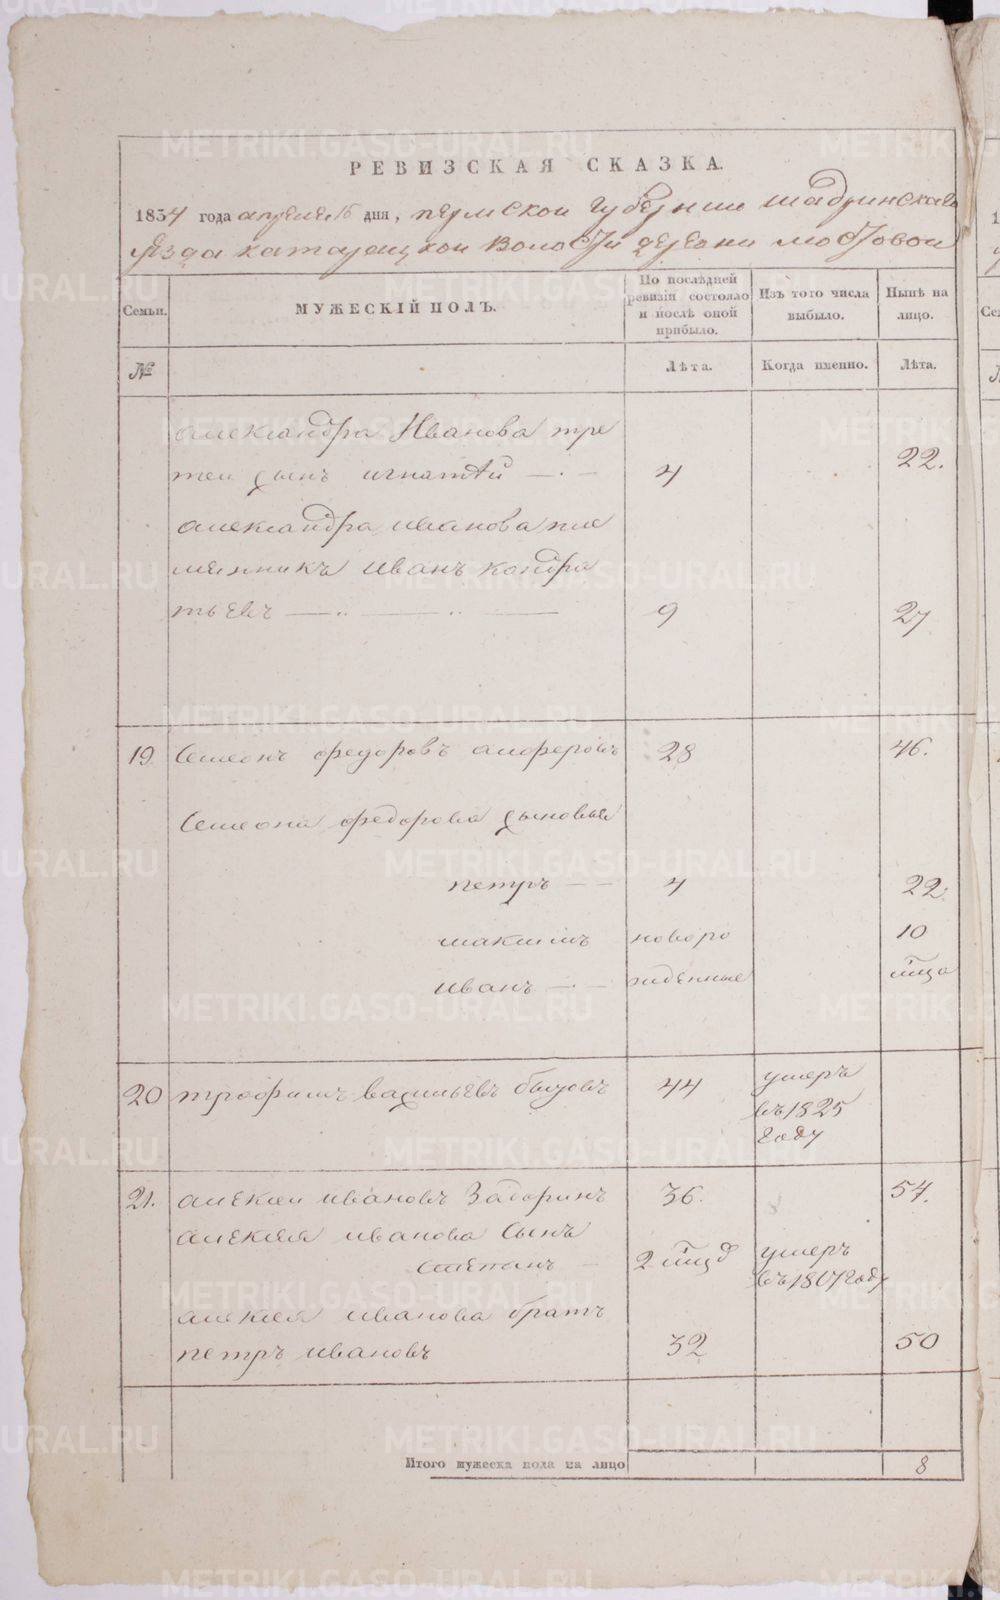 РЕВИЗСКАЯ СКАЗКА.
1834 года апреля 16 дня, пермской губернии шадринскаго
уезда катарецкой волости деревни мостовой
Семьи.
МУЖЕСКІЙ ПОЛЪ.
По послѣдней ревизіи состояло и послѣ оной прибыло.
Изъ того числа выбыло.
Нынѣ на лицо.
№
Лѣта.
Когда именно.
Лѣта.
александра Иванова тре
теи сынъ игнатей 4 22.
александра иванова пле
мянникъ иванъ кондра
тьевъ 9 27
19 Семенъ федоровъ алферовъ 28 46.
Семена федорова сыновья
петръ 4 22.
максимъ новоро 10
иванъ жденные
20 трофимъ васильевъ 44 умеръ въ 1825 году
21. алексеи ивановъ Задоринъ 36. 54.
алексея иванова Сынъ
степанъ 2 умеръ году
алексея иванова братъ
петръ ивановъ 32 50
Итого мужеска пола на лицо 8
METRIKI.GASO-URAL.RU